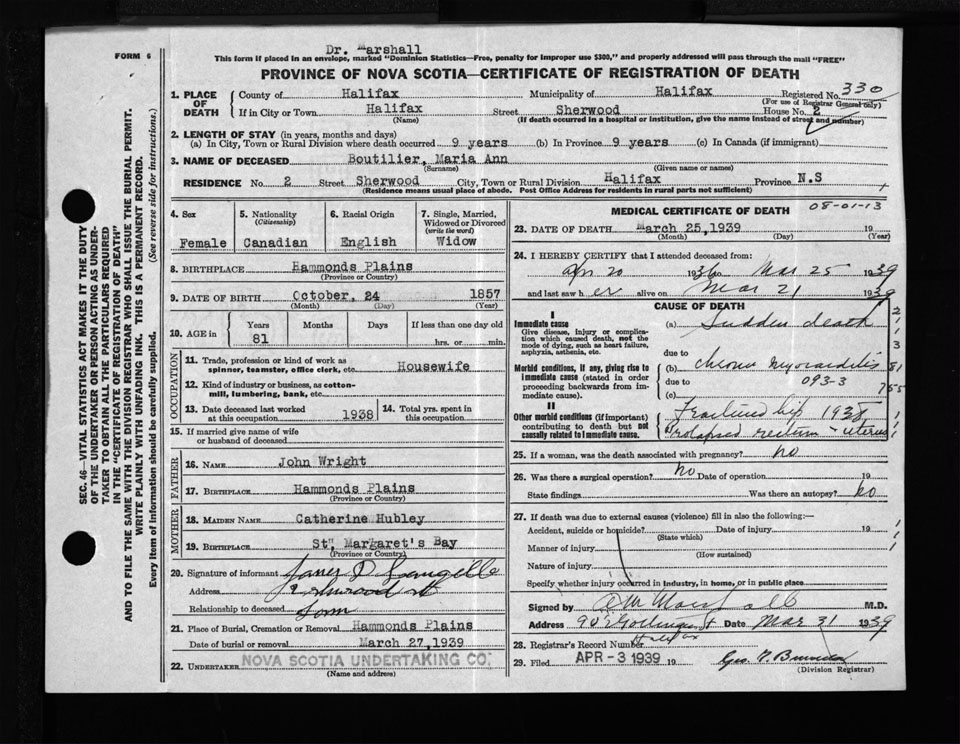 Dr. Marshall
FORM 6
This form if placed in an envelope, marked "Dominion Statistics—Free, penalty for improper use $300," and properly addressed will pass through the mail "FREE"
PROVINCE OF NOVA SCOTIA—CERTIFICATE OF REGISTRATION OF DEATH
1. PLACE OF DEATH County of Halifax Municipality of Halifax Registered No. 330
(For use of Registrar General only)
If in City or Town Halifax Street Sherwood House No. 2
(Name) (If death occurred in a hospital or institution, give the name instead of street and number)
2. LENGTH OF STAY (in years, months and days)
(a) In City, Town or Rural Division where death occurred 9 years (b) In Province 9 years (c) In Canada (if immigrant)
3. NAME OF DECEASED Boutilier, Maria Ann
(Surname) (Given name or names)
RESIDENCE No. 2 Street Sherwood City, Town or Rural Division Halifax Province N.S
(Residence means usual place of abode. Post Office Address for residents in rural parts not sufficient)
4. Sex Female
5. Nationality (Citizenship) Canadian
6. Racial Origin English
7. Single, Married, Widowed or Divorced (write the word) Widow
8. BIRTHPLACE Hammonds Plains
(Province or Country)
9. DATE OF BIRTH October, 24 1857
(Month) (Day) (Year)
10. AGE in Years Months Days If less than one day old
81 hrs. or min.
OCCUPATION
11. Trade, profession or kind of work as spinner, teamster, office clerk, etc. Housewife
12. Kind of industry or business, as cotton-mill, lumbering, bank, etc.
13. Date deceased last worked at this occupation 1938
14. Total yrs. spent in this occupation
15. If married give name of wife or husband of deceased
FATHER
16. NAME John Wright
17. BIRTHPLACE Hammonds Plains
(Province or Country)
MOTHER
18. MAIDEN NAME Catherine Hubley
19. BIRTHPLACE St. Margaret's Bay
(Province or Country)
20. Signature of informant James D
Address 2
Relationship to deceased
21. Place of Burial, Cremation or Removal Hammonds Plains
Date of burial or removal March 27, 1939
22. UNDERTAKER NOVA SCOTIA UNDERTAKING CO.
(Name and address)
MEDICAL CERTIFICATE OF DEATH 08-01-13
23. DATE OF DEATH March 25, 1939 19
(Month) (Day) (Year)
24. I HEREBY CERTIFY that I attended deceased from:
Apr 20 1936 to Mar 25 1939
and last saw her alive on Mar 21 1939
CAUSE OF DEATH
I
Immediate cause
Give disease, injury or complication which caused death, not the mode of dying, such as heart failure, asphyxia, asthenia, etc.
(a) Sudden death
due to
Morbid conditions, if any, giving rise to immediate cause (stated in order proceeding backwards from immediate cause).
(b) chronic myocarditis
due to 093-3
(c)
II
Other morbid conditions (if important) contributing to death but not causally related to immediate cause.
Fractured hip 1938
Prolapsed rectum - uterus
25. If a woman, was the death associated with pregnancy? no
26. Was there a surgical operation? no Date of operation 19
State findings Was there an autopsy? no
27. If death was due to external causes (violence) fill in also the following:—
Accident, suicide or homicide? Date of injury 19
(State which)
Manner of injury
(How sustained)
Nature of injury
Specify whether injury occurred in industry, in home, or in public place
Signed by Marshall M.D.
Address Gottingen St Date Mar 31 1939
Halifax
28. Registrar's Record Number
29. Filed APR - 3 1939 19 Geo.
(Division Registrar)
SEC. 46—VITAL STATISTICS ACT MAKES IT THE DUTY
OF THE UNDERTAKER OR PERSON ACTING AS UNDER-
TAKER TO OBTAIN ALL THE PARTICULARS REQUIRED
IN THE "CERTIFICATE OF REGISTRATION OF DEATH"
AND TO FILE THE SAME WITH THE DIVISION REGISTRAR WHO SHALL ISSUE THE BURIAL PERMIT.
WRITE PLAINLY WITH UNFADING INK. THIS IS A PERMANENT RECORD.
Every item of information should be carefully supplied. (See reverse side for instructions.)